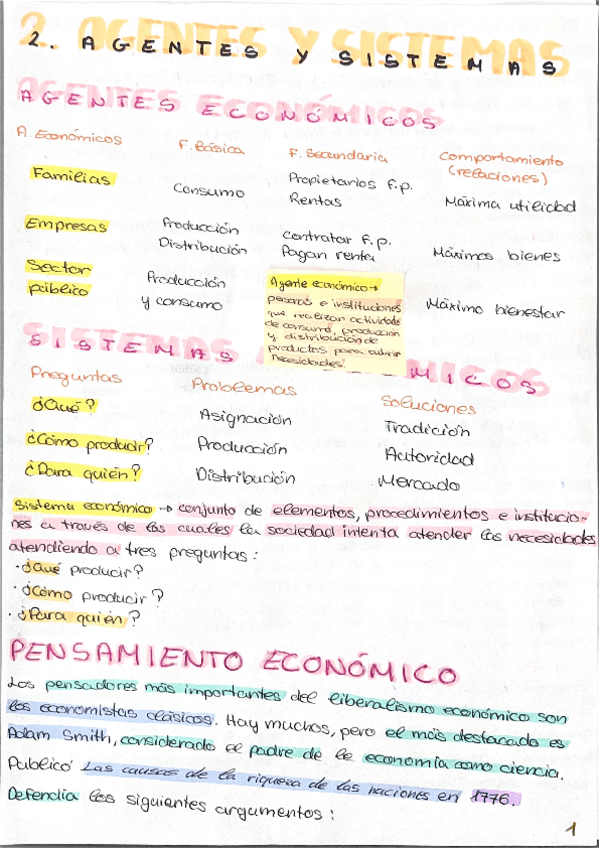 2. AGENTES Y SISTEMAS
AGENTES ECONÓMICOS
A. Económicos F. Básica F. Secundaria Comportamiento (relaciones)
Familias Consumo Propietarios f.p. Rentas Máxima utilidad
Empresas Producción Distribución Contratar f.p. Pagan renta Máximos bienes
Sector público Producción y consumo Máximo bienestar
Agente económico →
personas e instituciones
que realizan actividades
de consumo, producción
y distribución de
productos para cubrir
necesidades.
SISTEMAS MICOS
Preguntas Problemas Soluciones
¿Qué? Asignación Tradición
¿Cómo producir? Producción Autoridad
¿Para quién? Distribución Mercado
Sistema económico → conjunto de elementos, procedimientos e institucio-
nes a través de los cuales la sociedad intenta atender las necesidades
atendiendo a tres preguntas:
· ¿Qué producir?
· ¿Cómo producir?
· ¿Para quién?
PENSAMIENTO ECONÓMICO
Los pensadores más importantes del liberalismo económico son
los economistas clásicos. Hay muchos, pero el más destacado es
Adam Smith, considerado el padre de la economía como ciencia.
Publicó Las causas de la riqueza de las naciones en 1776.
Defendía los siguientes argumentos:
1